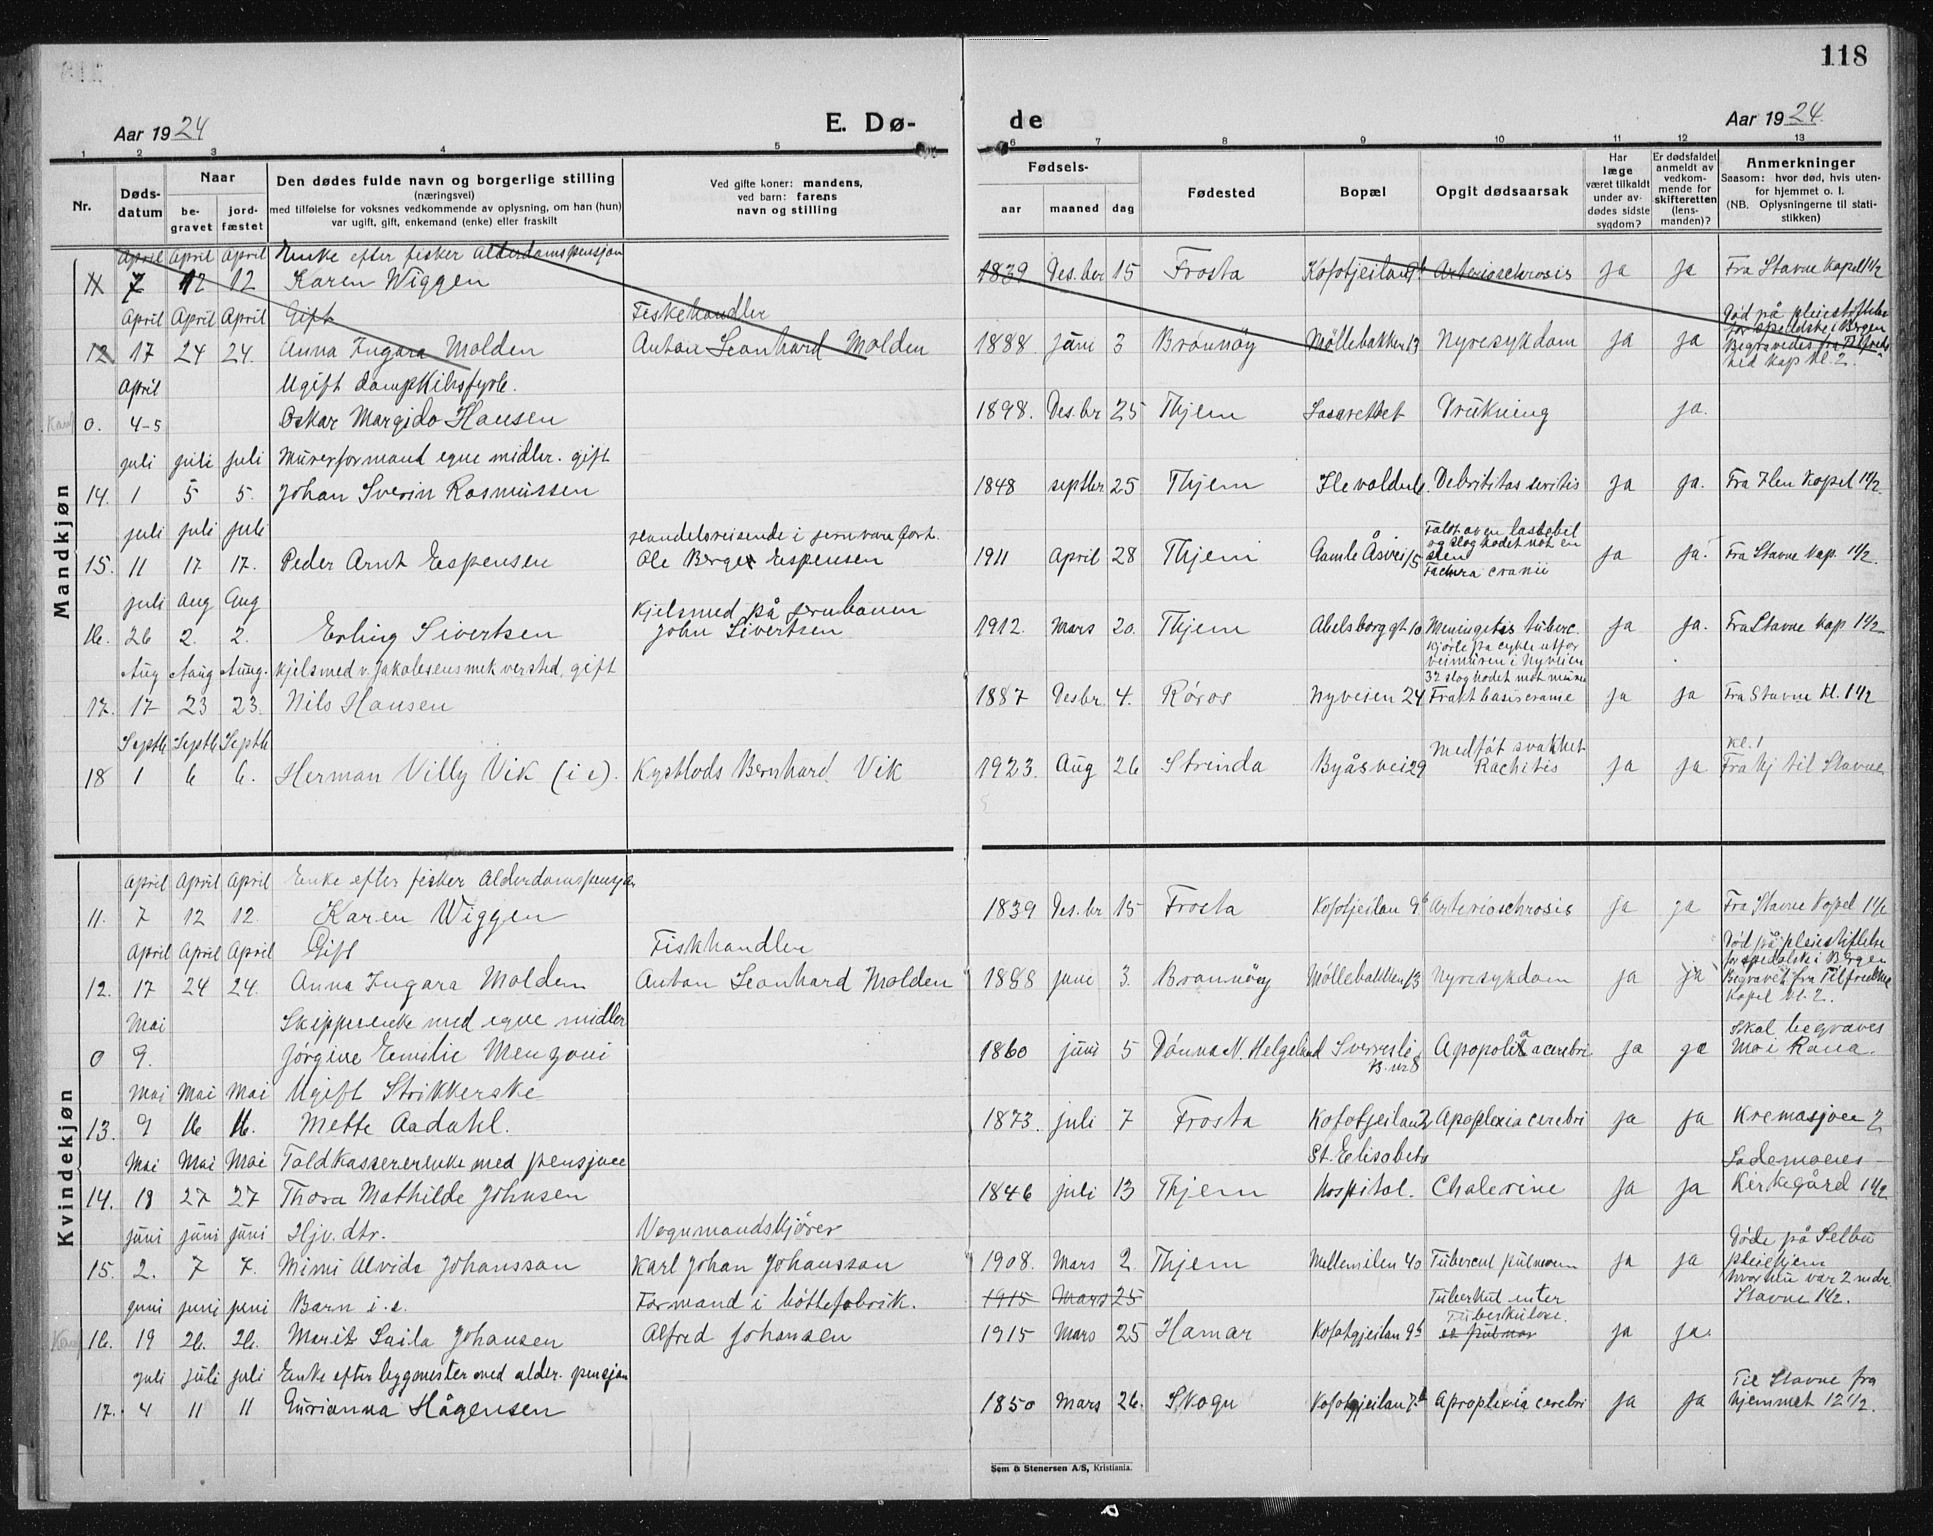 118
Aar 1924 E. Dø- de Aar 1924.
1 2 3 4 5 6 7 8 9 10 11 12 13
Nr. Døds-datum Naar be-gravet jord-fæstet Den dødes fulde navn og borgerlige stilling (næringsvei) med tilføielse for voksnes vedkommende av oplysning, om han (hun) var ugift, gift, enkemand (enke) eller fraskilt Ved gifte koner: mandens, ved barn: farens navn og stilling Fødsels- aar maaned dag Fødested Bopæl Opgit dødsaarsak Har læge været tilkaldt under av-dødes sidste sygdom? Er dødsfaldet anmeldt av vedkom-mende for skifteretten (lens-manden)? Anmerkninger Saasom: hvor død, hvis uten-for hjemmet o. l. (NB. Oplysningerne til stati-stikken)
Mandkjøn
April April April Enke efter fisker Alderdomspensjon
11 7 12 12 Karen Wiggen 1839 Des.br 15 Frosta Kofotgeilan 9b Arterioschrosis ja ja Fra Stavne Kapel 1½
April April April Gift Fiskehandler Død på pleiestiftelse
for spedalske i Bergen
12 17 24 24. Anna Ingara Molden Anton Leonhard Molden 1888 juni 3 Brønnøy Møllebakken 13 Nyresykdom ja ja Begravedes fra Tilfreds
hed kap kl. 2.
April Ugift dampskibsfyrb.
0. 4-5 Oskar Margido Hansen 1898. Des.br 25 Thjem Lasarettet Drukning ja.
juli juli juli Murerformand egne midler. gift
14. 1 5 5. Johan Sverin Rasmussen 1848 septbr 25 Thjem Ilevolden 6. Debititas senitis ja ja. Fra Ilen Kapel 1½.
juli juli juli Handelsreisende i jernvare fort. Faldt av en lastebil
og slog hodet mot en
15. 11 17 17. Peder Arnt Espensen Ole Berger Espensen 1911 April 28 Thjem Gamle Åsvei 15 sten ja ja. Fra Stavne kap. 1½.
Factura cranii
juli Aug Aug Kjelsmed på jernbanen
16. 26 2. 2. Erling Sivertsen John Sivertsen 1912. Mars 20. Thjem Abelsborg gt. 10 Meningetis tuberc. ja ja. Fra Stavne kap 1½
Kjørte på cykle utfor
Aug Aaug Aaug. Kjelsmed v. Jakobsens mek versted, gift veimuren i Nyveien
32 slog hodet mot muren
17. 17 23 23. Nils Hansen 1887 Desbr. 4. Røros Nyveien 24 Frakt basis crane ja ja Fra Stavne kl. 1½
Septb Septb Septb Medføt svakhet kl. 1
18 1 6 6. Herman Villy Vik (i e). Kystlods Bernhard Vik 1923. Aug 26 Strinda Byåsvei 29 Rachitis ja ja Fra hj til Stavne
Kvindekjøn
April April April Enke efter fisker Alderdomspensjon
11. 7 12 12. Karen Wiggen 1839 Des.br 15 Frosta Kofotgeilan 9b Arterioschrosis ja ja Fra Stavne Kapel 1½
April April April Gift Fiskhandler Død på pleiestiftelse
for spedalske i Bergen
12. 17 24 24. Anna Ingara Molden Anton Leonhard Molden 1888 june 3. Brønnøy Møllebakken 13 Nyresykdom ja ja Begravet fra Tilfredshe
Kapel kl. 2.
Mai Skipperenke med egne midler Skal begraves
0 9. Jørgine Emilie Mengoni 1860 juni 5 Dønna N. Helgeland Sverreslie B. nr 8 Apopolixa cerebri ja ja Mo i Rana.
Mai Mai Mai Ugift Strikkerske
13. 9 16 16. Mette Aadahl. 1873. juli 7 Frosta Kofotgeilan 2 Apoplexia cerebri ja ja Kremasjoen 2
Mai Mai Mai Toldkassererenke med pensjon St. Elisabets Lademoens
14. 18 27 27 Thora Mathilde Johnsen 1846 juli 13 Thjem Hospital. Cholerine ja ja Kirkegård 1½
juni juni juni Hjv. dtr. Vognmandskjører Døde på Selbu
15. 2. 7 7. Mimi Alvide Johansson Karl Johan Johansson 1908. Mars 2. Thjem Mellemilen 40 Tubercul pulmonum ja ja pleiehjem
hvor hu var 2 mdr.
juni juni juni Barn i.e. Formand i bøttefabrik. 1915 Mars 25 Tuberkul enter Stavne 1½.
Tuberkulose.
16. 19 26. 26. Marit Laila Johansen Alfred Johansen 1915 Mars 25 Hamar Kofotgjeilan 9b et pulmon ja ja.
juli juli juli Enke efter bygmester med alder. pensjon Til Stavne fra
17. 4 11 11 Gurianna Hågensen 1850 Mars 26. Skogn Kofotgjeilan 7.b Aproplexia cerebri ja ja hjemmet 12½.
Sem & Stenersen A/S, Kristiania.